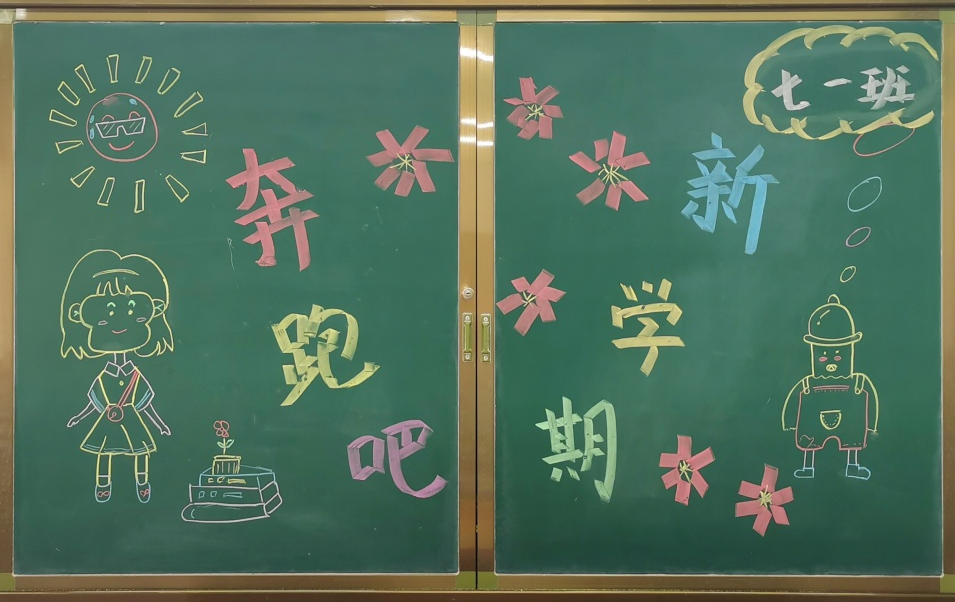 奔跑吧
新学期
七一班